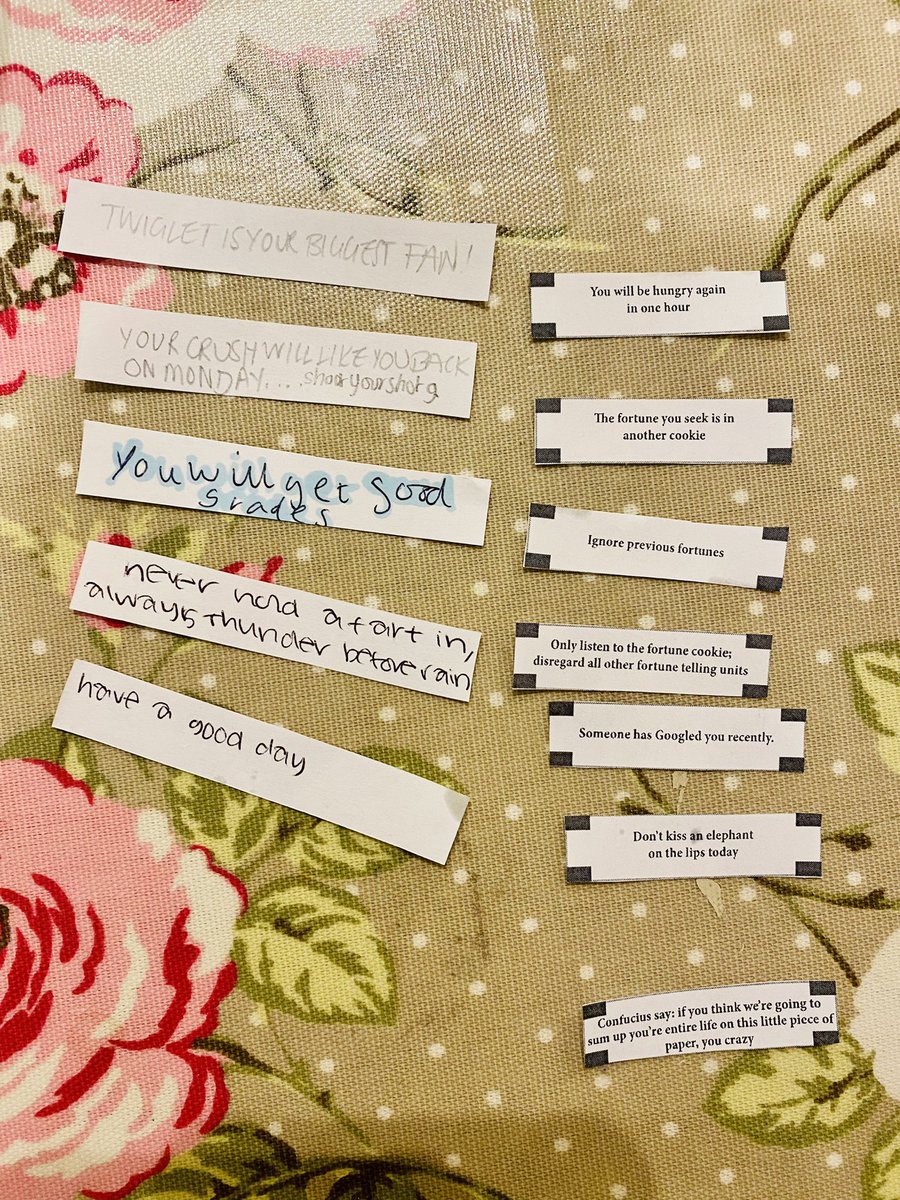 TWIGLET IS YOUR BIGGEST FAN!
YOUR CRUSH WILL LIKE YOU BACK
ON MONDAY.... shoot your shot g
You will get good
grades
never hold a fart in,
always thunder before rain
have a good day
You will be hungry again
in one hour
The fortune you seek is in
another cookie
Ignore previous fortunes
Only listen to the fortune cookie;
disregard all other fortune telling units
Someone has Googled you recently.
Don't kiss an elephant
on the lips today
Confucius say: if you think we're going to
sum up you're entire life on this little piece of
paper, you crazy